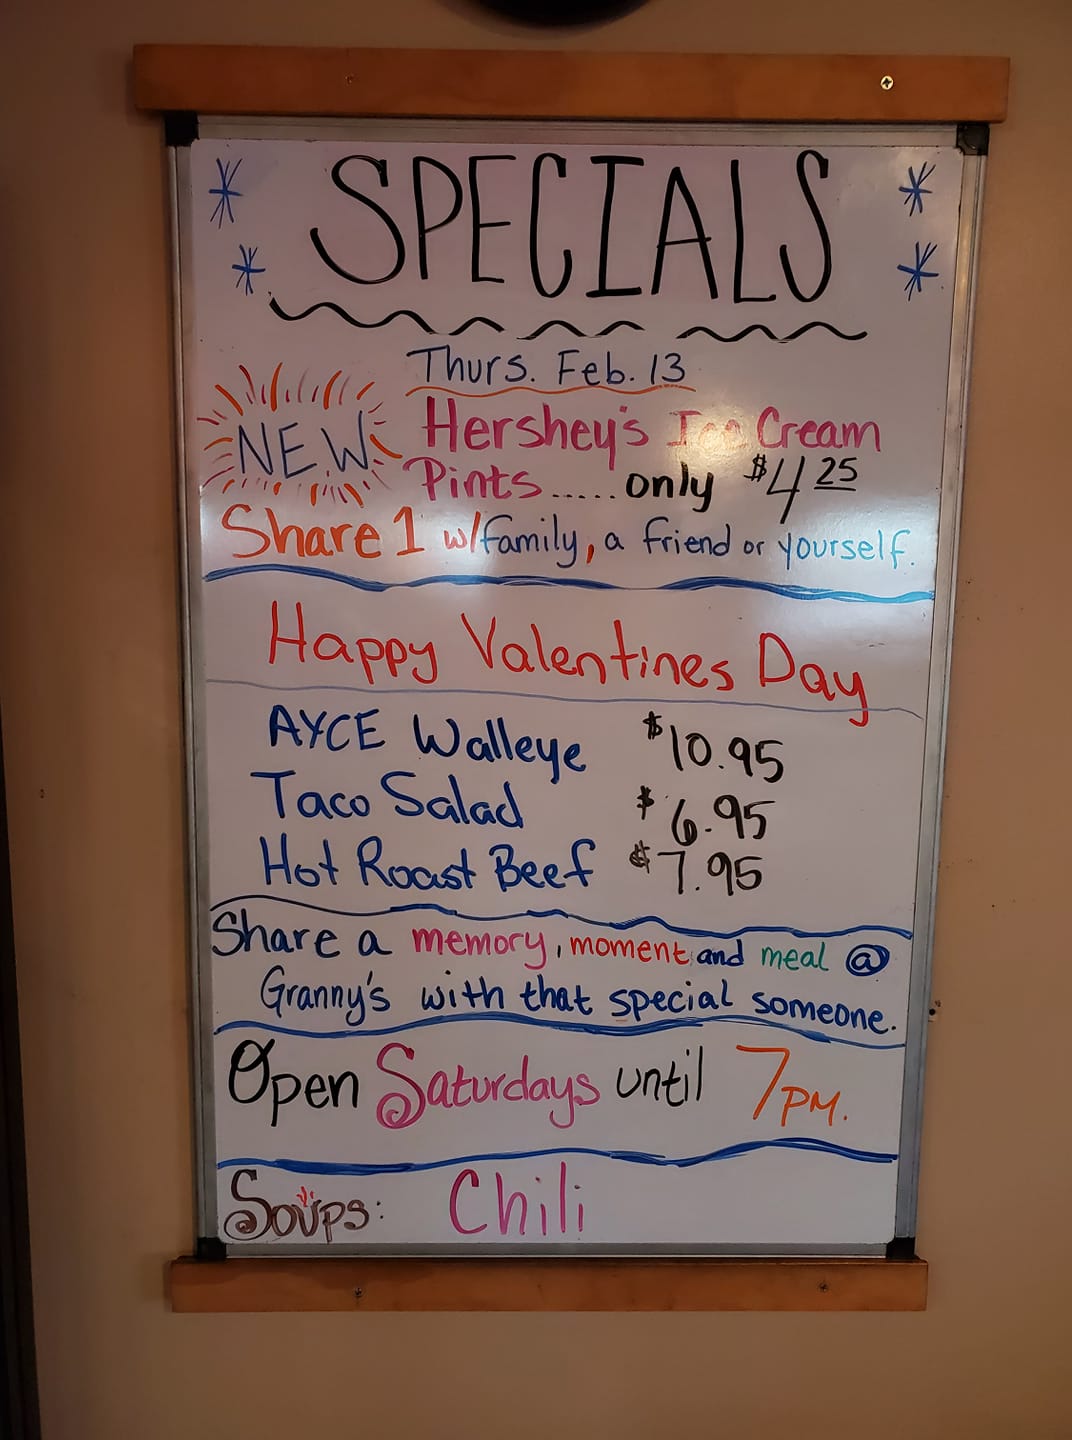 SPECIALS
Thurs. Feb. 13
NEW
Hershey's Ice Cream
Pints ..... only $4 25
Share 1 w/family, a friend or yourself.
Happy Valentines Day
AYCE Walleye $10.95
Taco Salad $6.95
Hot Roast Beef $7.95
Share a memory, moment and meal @
Granny's with that special someone.
Open Saturdays until 7PM.
Soups: Chili